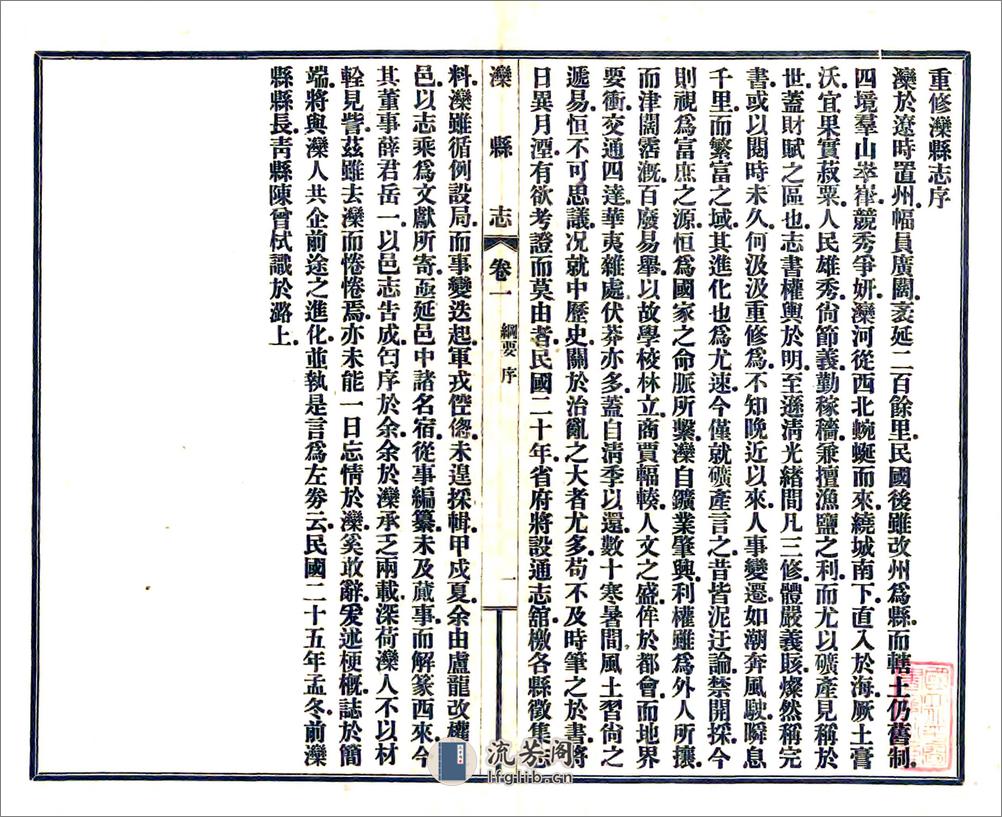 重修灤縣志序
灤於遼時置州幅員廣闊袤延二百餘里民國後雖改州爲縣而轄土仍舊制
四境羣山崒嵂競秀爭妍灤河從西北蜿蜒而來繞城南下直入於海厥土膏
沃宜果實菽粟人民雄秀尙節義勤稼穡兼擅漁鹽之利而尤以礦產見稱於
世蓋財賦之區也志書權輿於明至遜淸光緒間凡三修體嚴義賅燦然稱完
書或以閱時未久何汲汲重修爲不知晚近以來人事變遷如潮奔風駛瞬息
千里而繁富之域其進化也爲尤速今僅就礦產言之昔皆泥迂論禁開採今
則視爲富庶之源恒爲國家之命脈所繫灤自鑛業肇興利權雖爲外人所攘
而津闓霑漑百廢易舉以故學校林立商賈輻輳人文之盛侔於都會而地界
要衝交通四達華夷雜處伏莽亦多蓋自淸季以還數十寒暑間風土習尙之
遞易恒不可思議况就中歷史關於治亂之大者尤多苟不及時筆之於書將
日異月湮有欲考證而莫由者民國二十年省府將設通志舘檄各縣徵集志
灤縣志 卷一 綱要 序 一
料灤雖循例設局而事變迭起軍戎倥傯未遑採輯甲戌夏余由盧龍改權
邑以志乘爲文獻所寄亟延邑中諸名宿從事編纂未及蕆事而解篆西來今
其董事薛君岳一以邑志告成匄序於余余於灤承乏兩載深荷灤人不以材
輇見訾茲雖去灤而惓惓焉亦未能一日忘情於灤奚敢辭爰述梗槪誌於簡
端將與灤人共企前途之進化並執是言爲左劵云民國二十五年孟冬前灤
縣縣長靑縣陳曾栻識於潞上
流芳阁
lfglib.cn